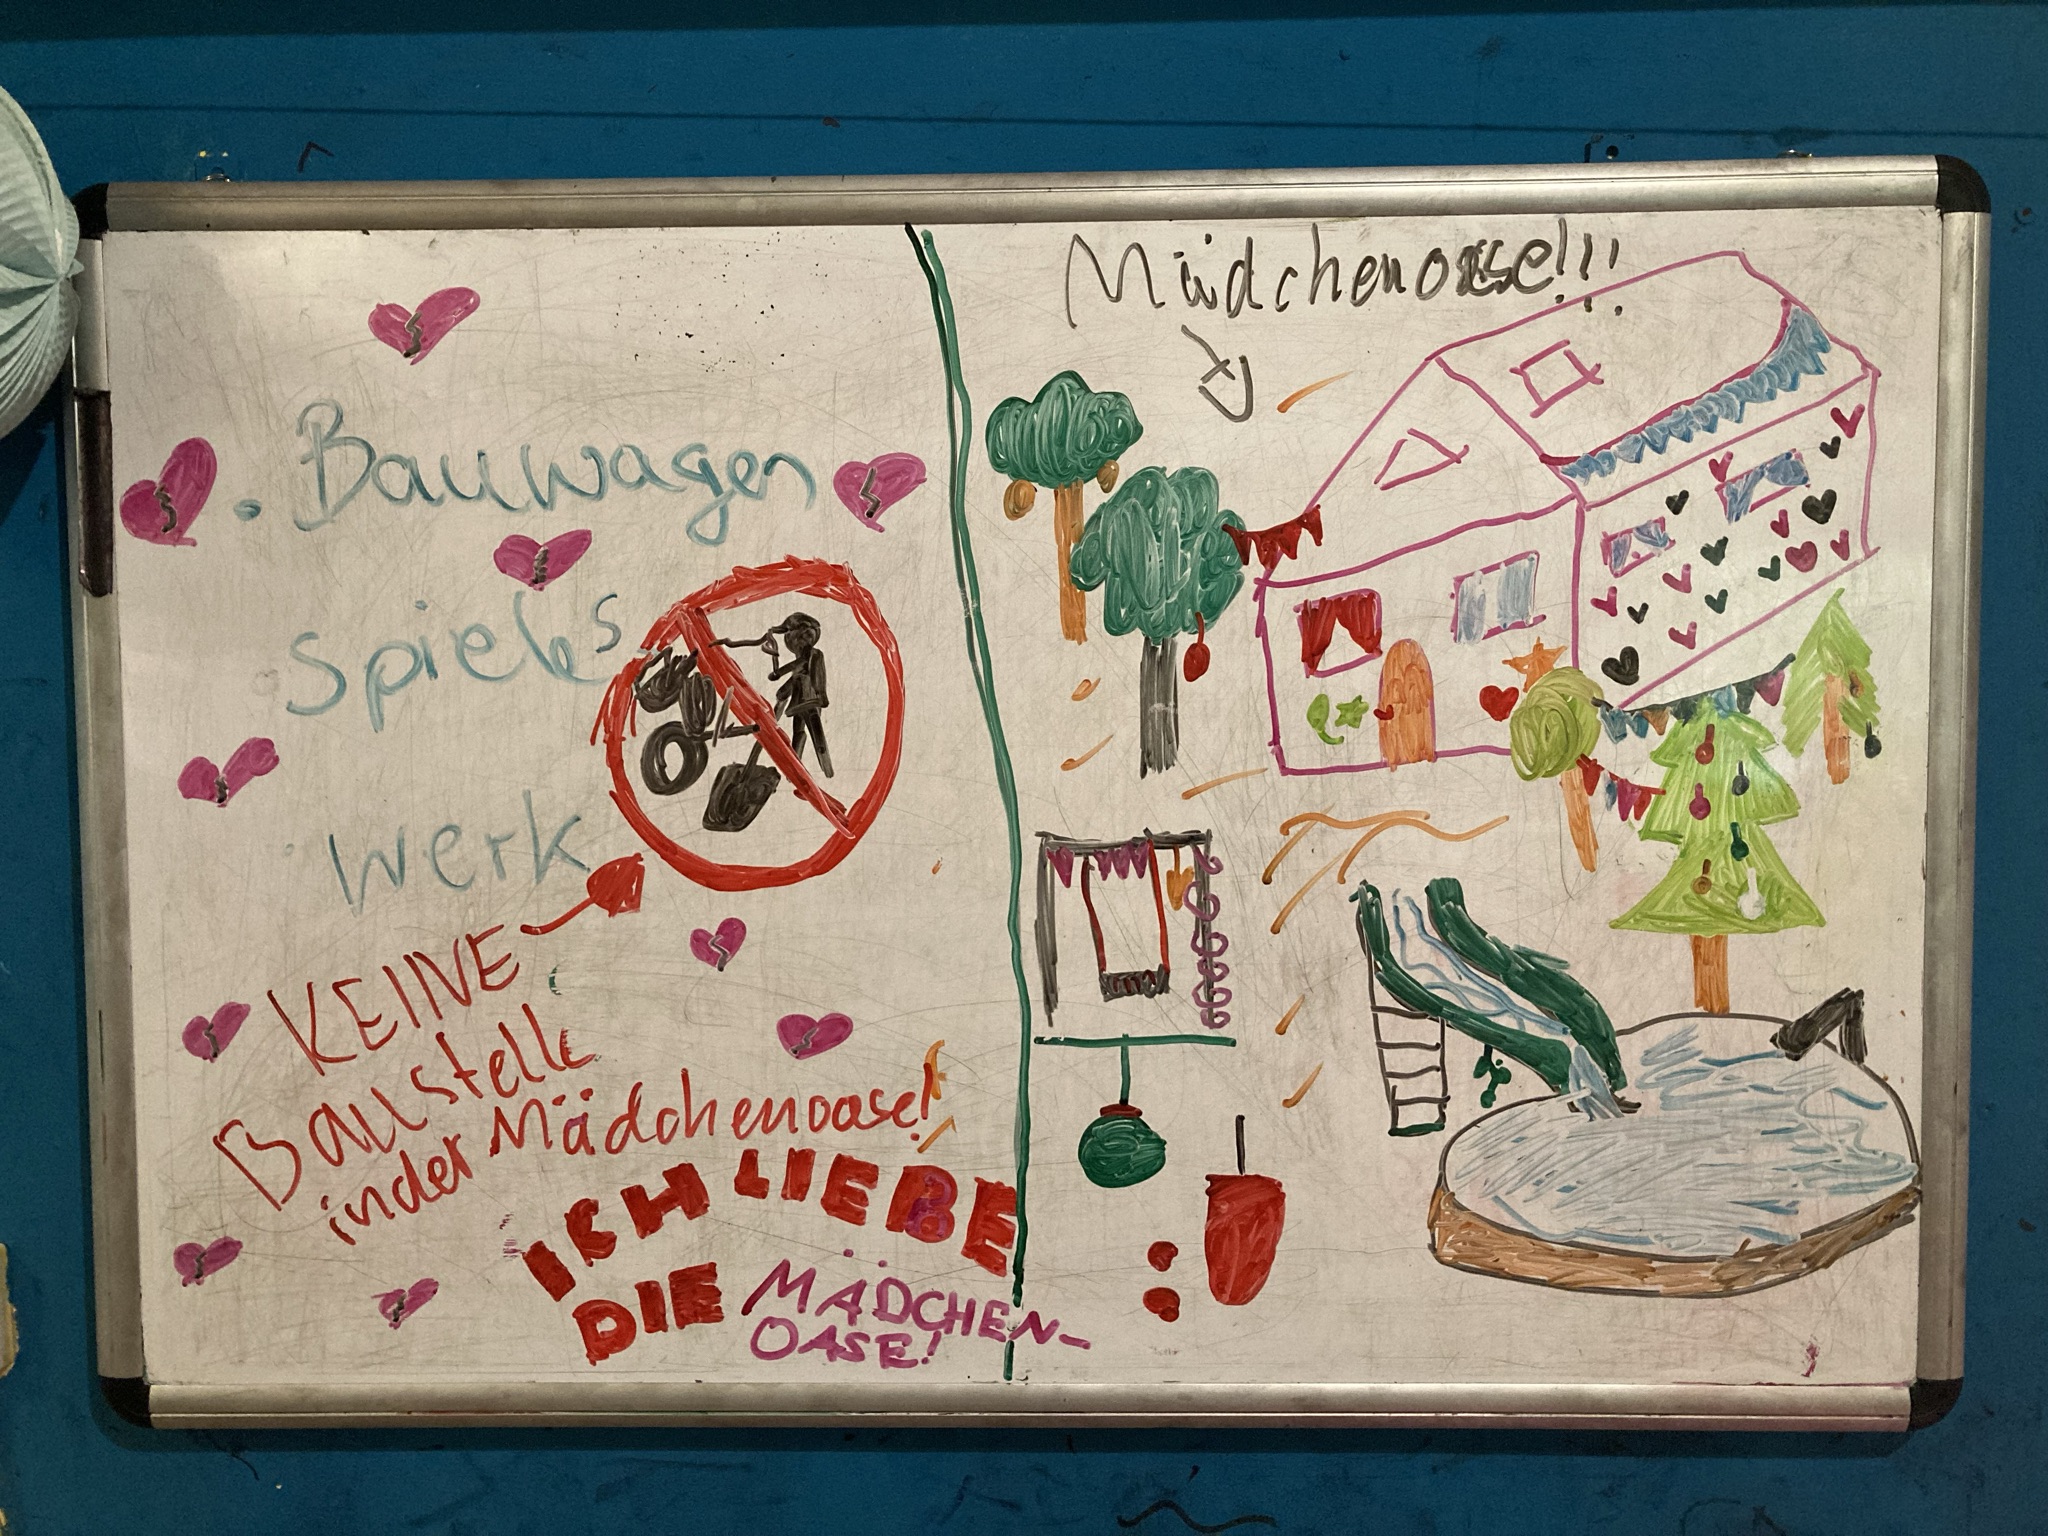 Bauwagen
spiels
werk
KEINE
Baustelle
in der Mädchenoase!
ICH LIEBE
DIE MÄDCHEN-
OASE!
Mädchenoase!!!